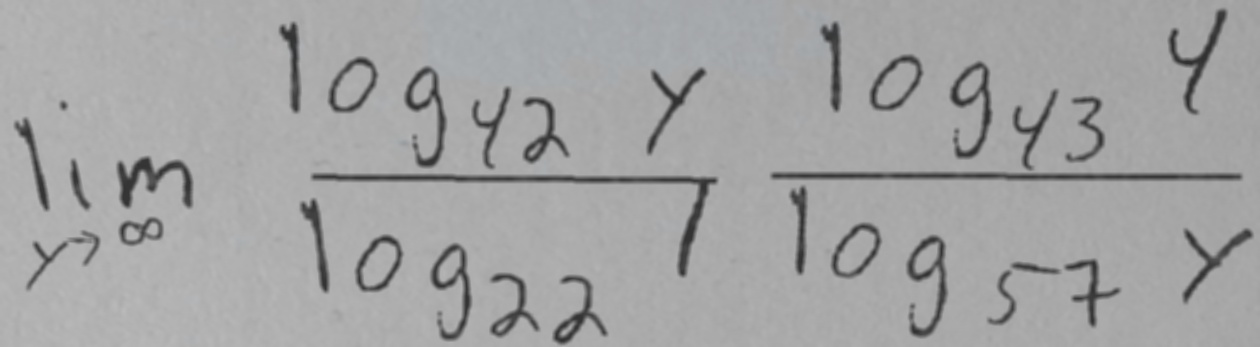 \lim_{y \to \infty} \frac{\log_{42} y}{\log_{22} 7} \frac{\log_{43} 4}{\log_{57} y}